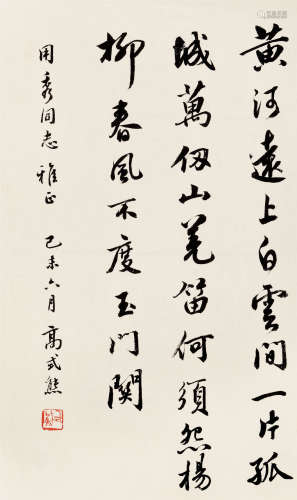 黄河遠上白雲間一片孤
城萬仞山羌笛何須怨楊
柳春風不度玉門関
用秀同志雅正 己未六月高式熊